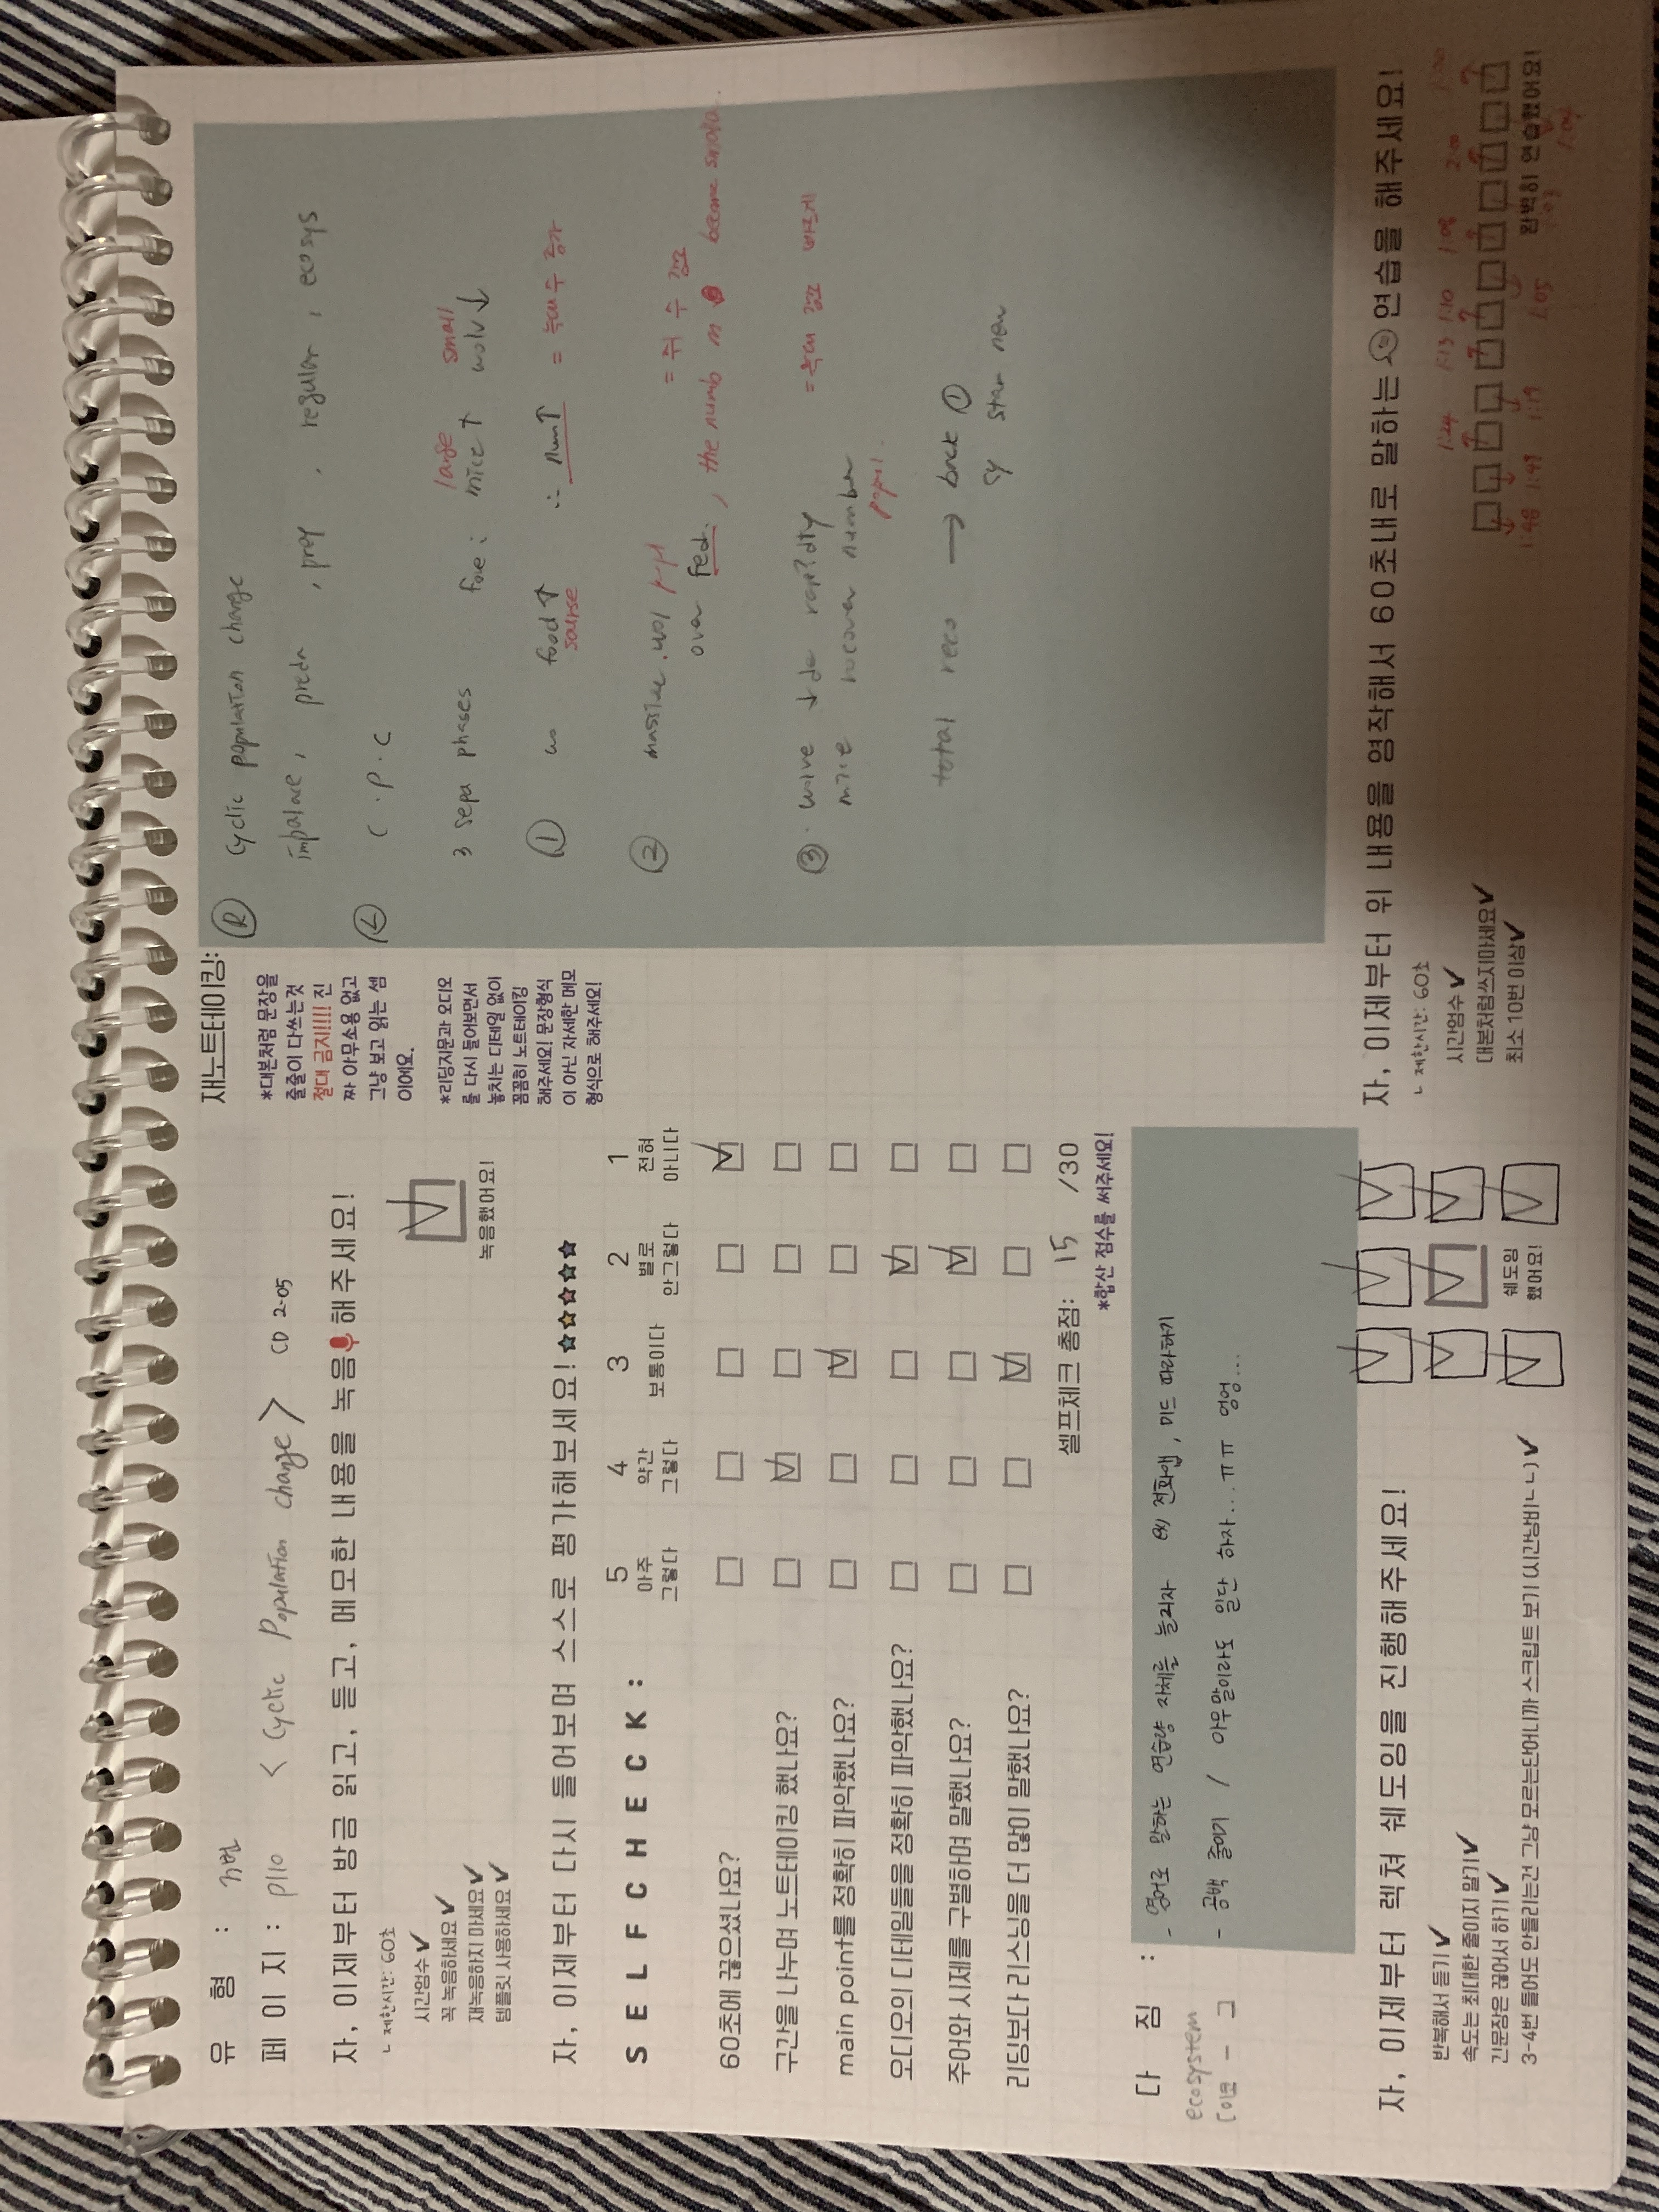 유 형 : 3번
페 이 지 : p110 < Cyclic Population change > CD 2-05
자, 이제부터 방금 읽고, 듣고, 메모한 내용을 녹음 해주세요!
ㄴ 제한시간: 60초
시간엄수✔
꼭 녹음하세요✔
재녹음하지 마세요✔
템플릿 사용하세요✔
녹음했어요!
자, 이제부터 다시 들어보며 스스로 평가해보세요!
S E L F C H E C K :
5 4 3 2 1
아주 약간 보통이다 별로 전혀
그렇다 그렇다 안그렇다 아니다
60초에 끊으셨나요?
구간을 나누며 노트테이킹 했나요?
main point를 정확히 파악했나요?
오디오의 디테일들을 정확히 파악했나요?
주어와 시제를 구별하며 말했나요?
리딩보다 리스닝을 더 많이 말했나요?
셀프체크 총점: 15 /30
*합산 점수를 써주세요!
다 짐 :
- 영어로 말하는 연습량 자체를 늘리자 ex) 전화앱, 미드 따라하기
- 공백 줄이기 / 아무말이라도 일단 하자... ㅠㅠ 엉엉...
ecosystem
자, 이제부터 렉쳐 쉐도잉을 진행해주세요!
반복해서 듣기✔
속도는 최대한 줄이지 말기✔
긴문장은 끊어서 하기✔
3-4번 들어도 안들리는건 그냥 모르는단어니까 스크립트 보기 (시간낭비ㄴㄴ)✔
쉐도잉
했어요!
재노트테이킹:
*대본처럼 문장을
줄줄이 다쓰는것
절대 금지!!!! 진
짜 아무소용 없고
그냥 보고 읽는 셈
이에요.
*리딩지문과 오디오
를 다시 들어보면서
놓치는 디테일 없이
꼼꼼히 노트테이킹
해주세요! 문장형식
이 아닌 자세한 메모
형식으로 해주세요!
Ⓡ cyclic population change
imbalace, preda , prey , regular , ecosys
Ⓛ C . P . C
large small
3 sepa phases mice↑ wolv↓
① food↑ ∴ num↑ = 늑대수 증가
② massive. wol = 쥐 수 감소
over fed. , the numb become
③ wolve ↓ de rapidly = 늑대 감소 빠르게
mice recover number
popul
total reco → back ①
자, 이제부터 위 내용을 영작해서 60초내로 말하는 연습을 해주세요!
ㄴ 제한시간: 60초
시간엄수✔
대본처럼쓰지마세요✔
최소 10번 이상✔
1:24 1:13 1:10 1:08 2:00
1:48 1:49 1:19 1:05
완벽히 연습했어요!